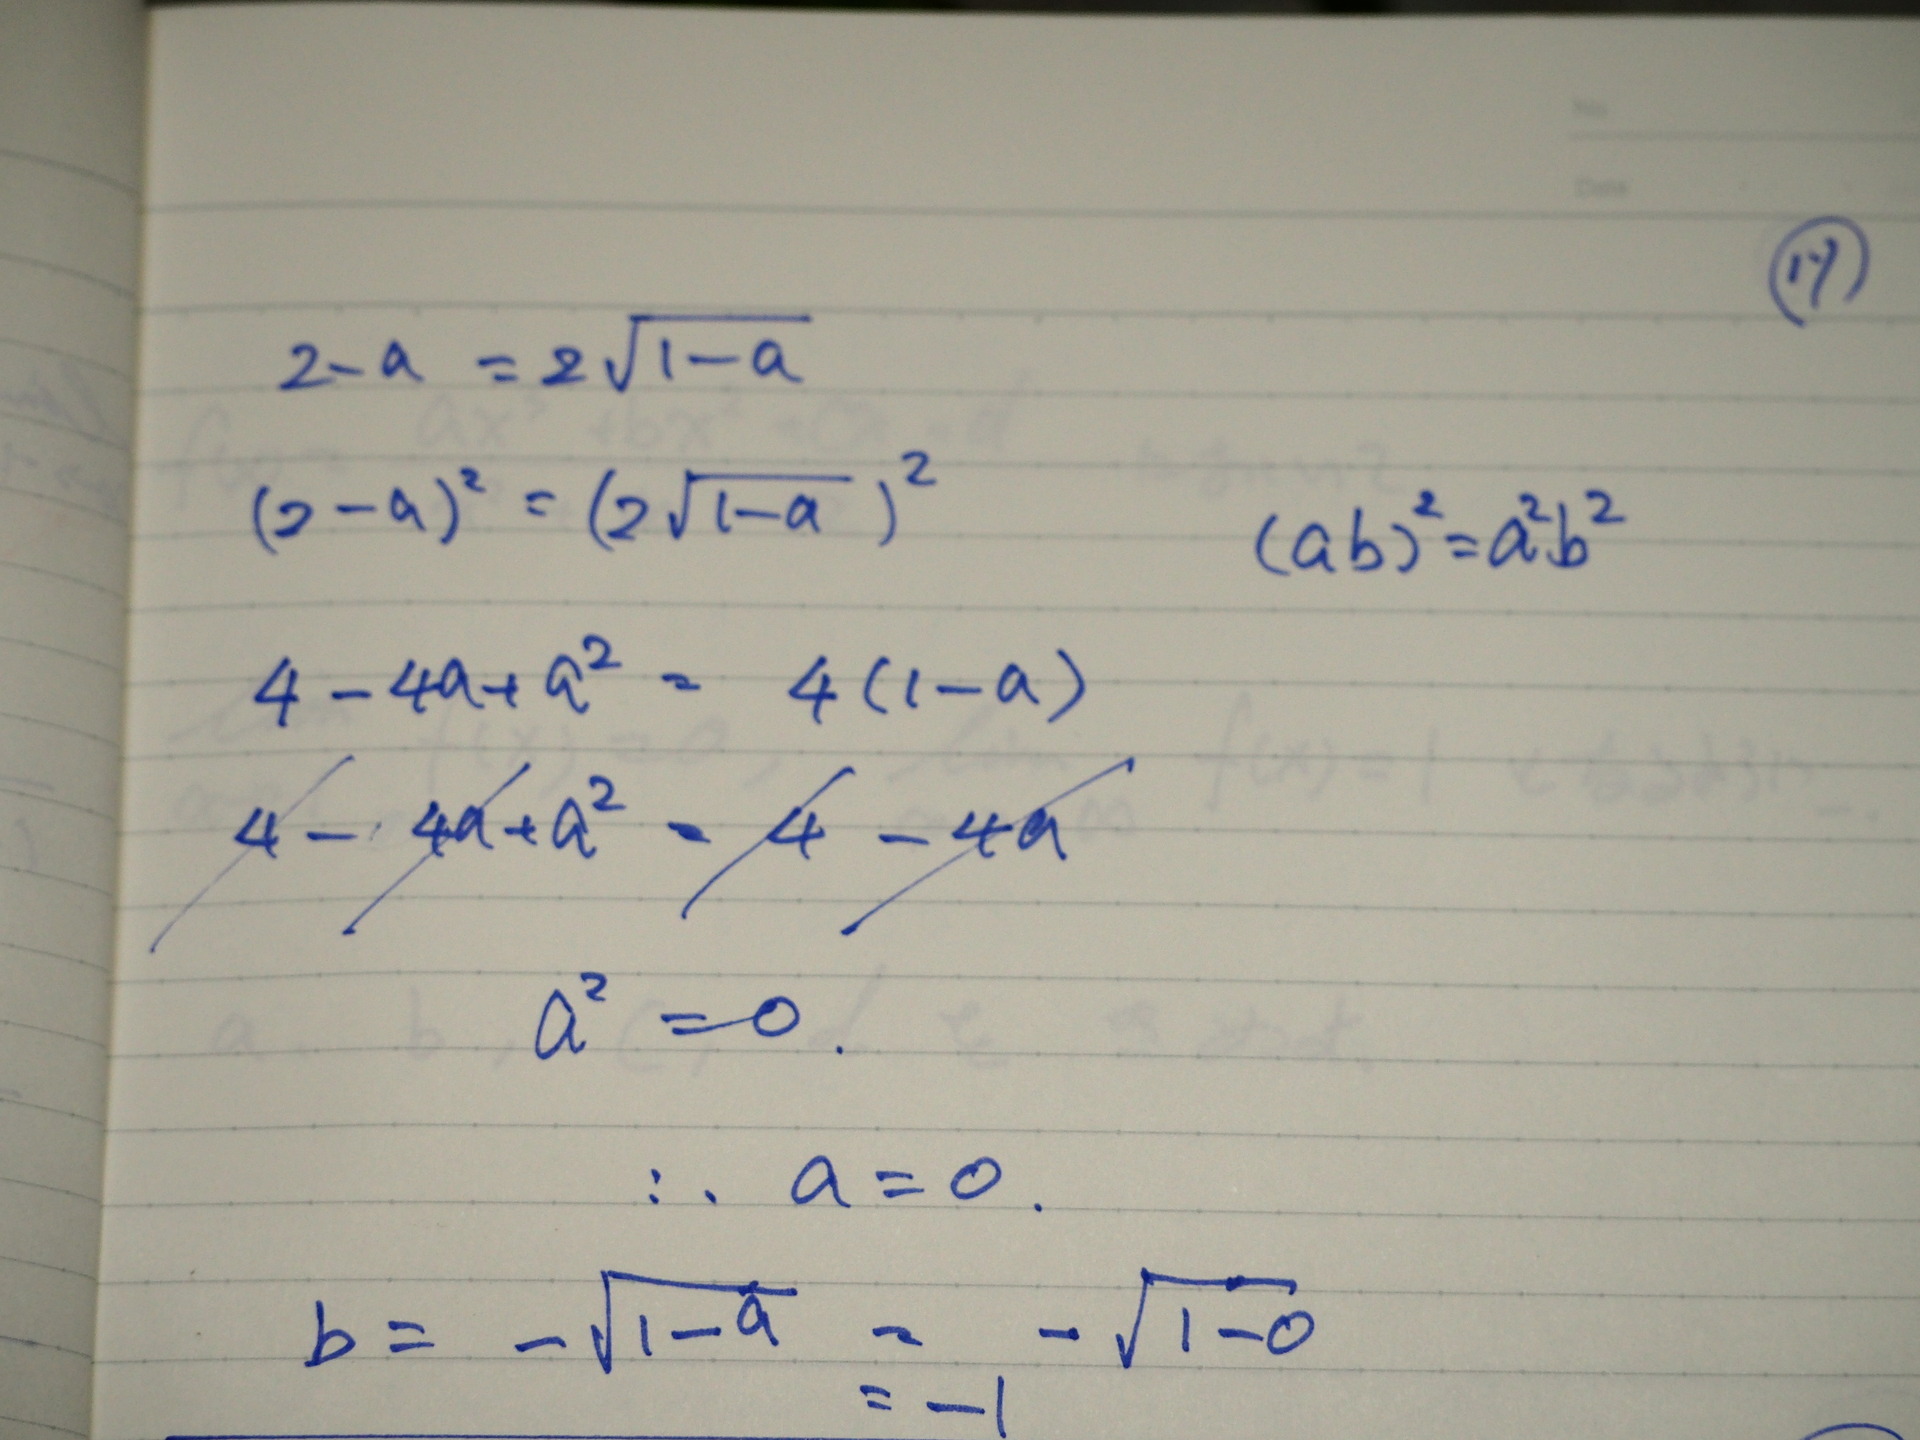 No.
Date
2-a = 2√(1-a)
(2-a)² = (2√(1-a))²
(ab)²=a²b²
4-4a+a² = 4(1-a)
4-4a+a² = 4-4a
a² = 0.
∴ a=0.
b= -√(1-a) = -√(1-0)
= -1